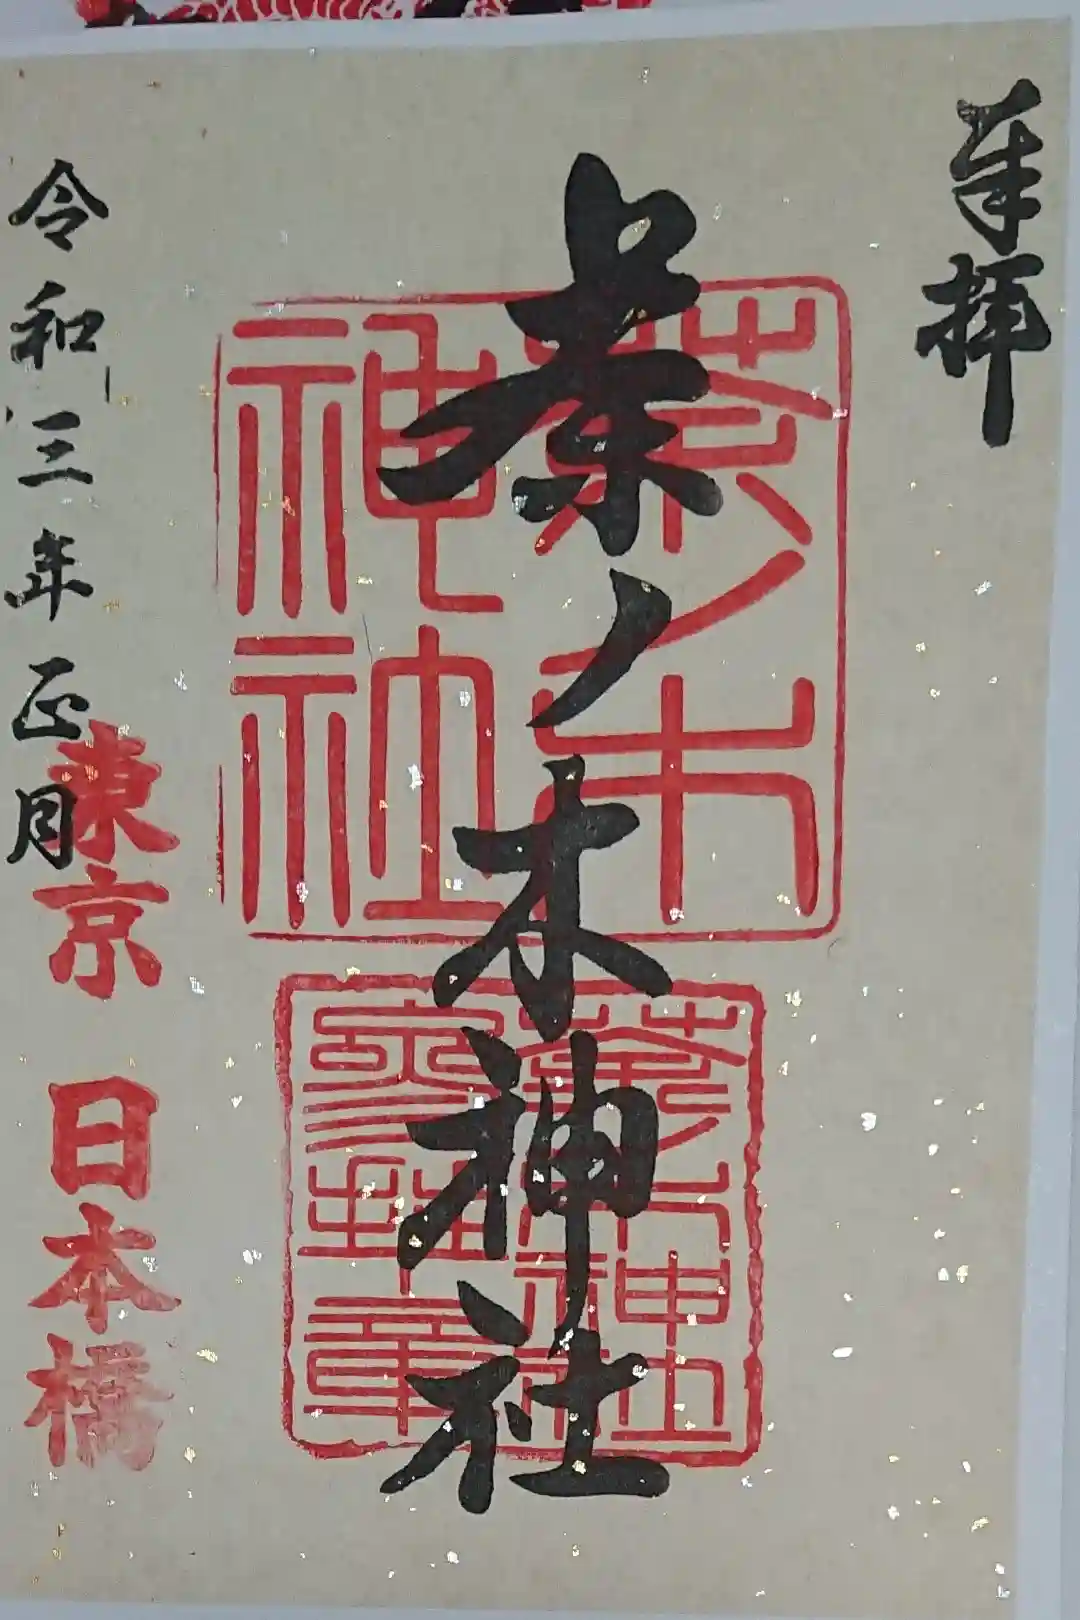 奉拝
茶ノ木神社
茶ノ木
神社
茶ノ木神社
参拝章
令和三年正月
東京 日本橋